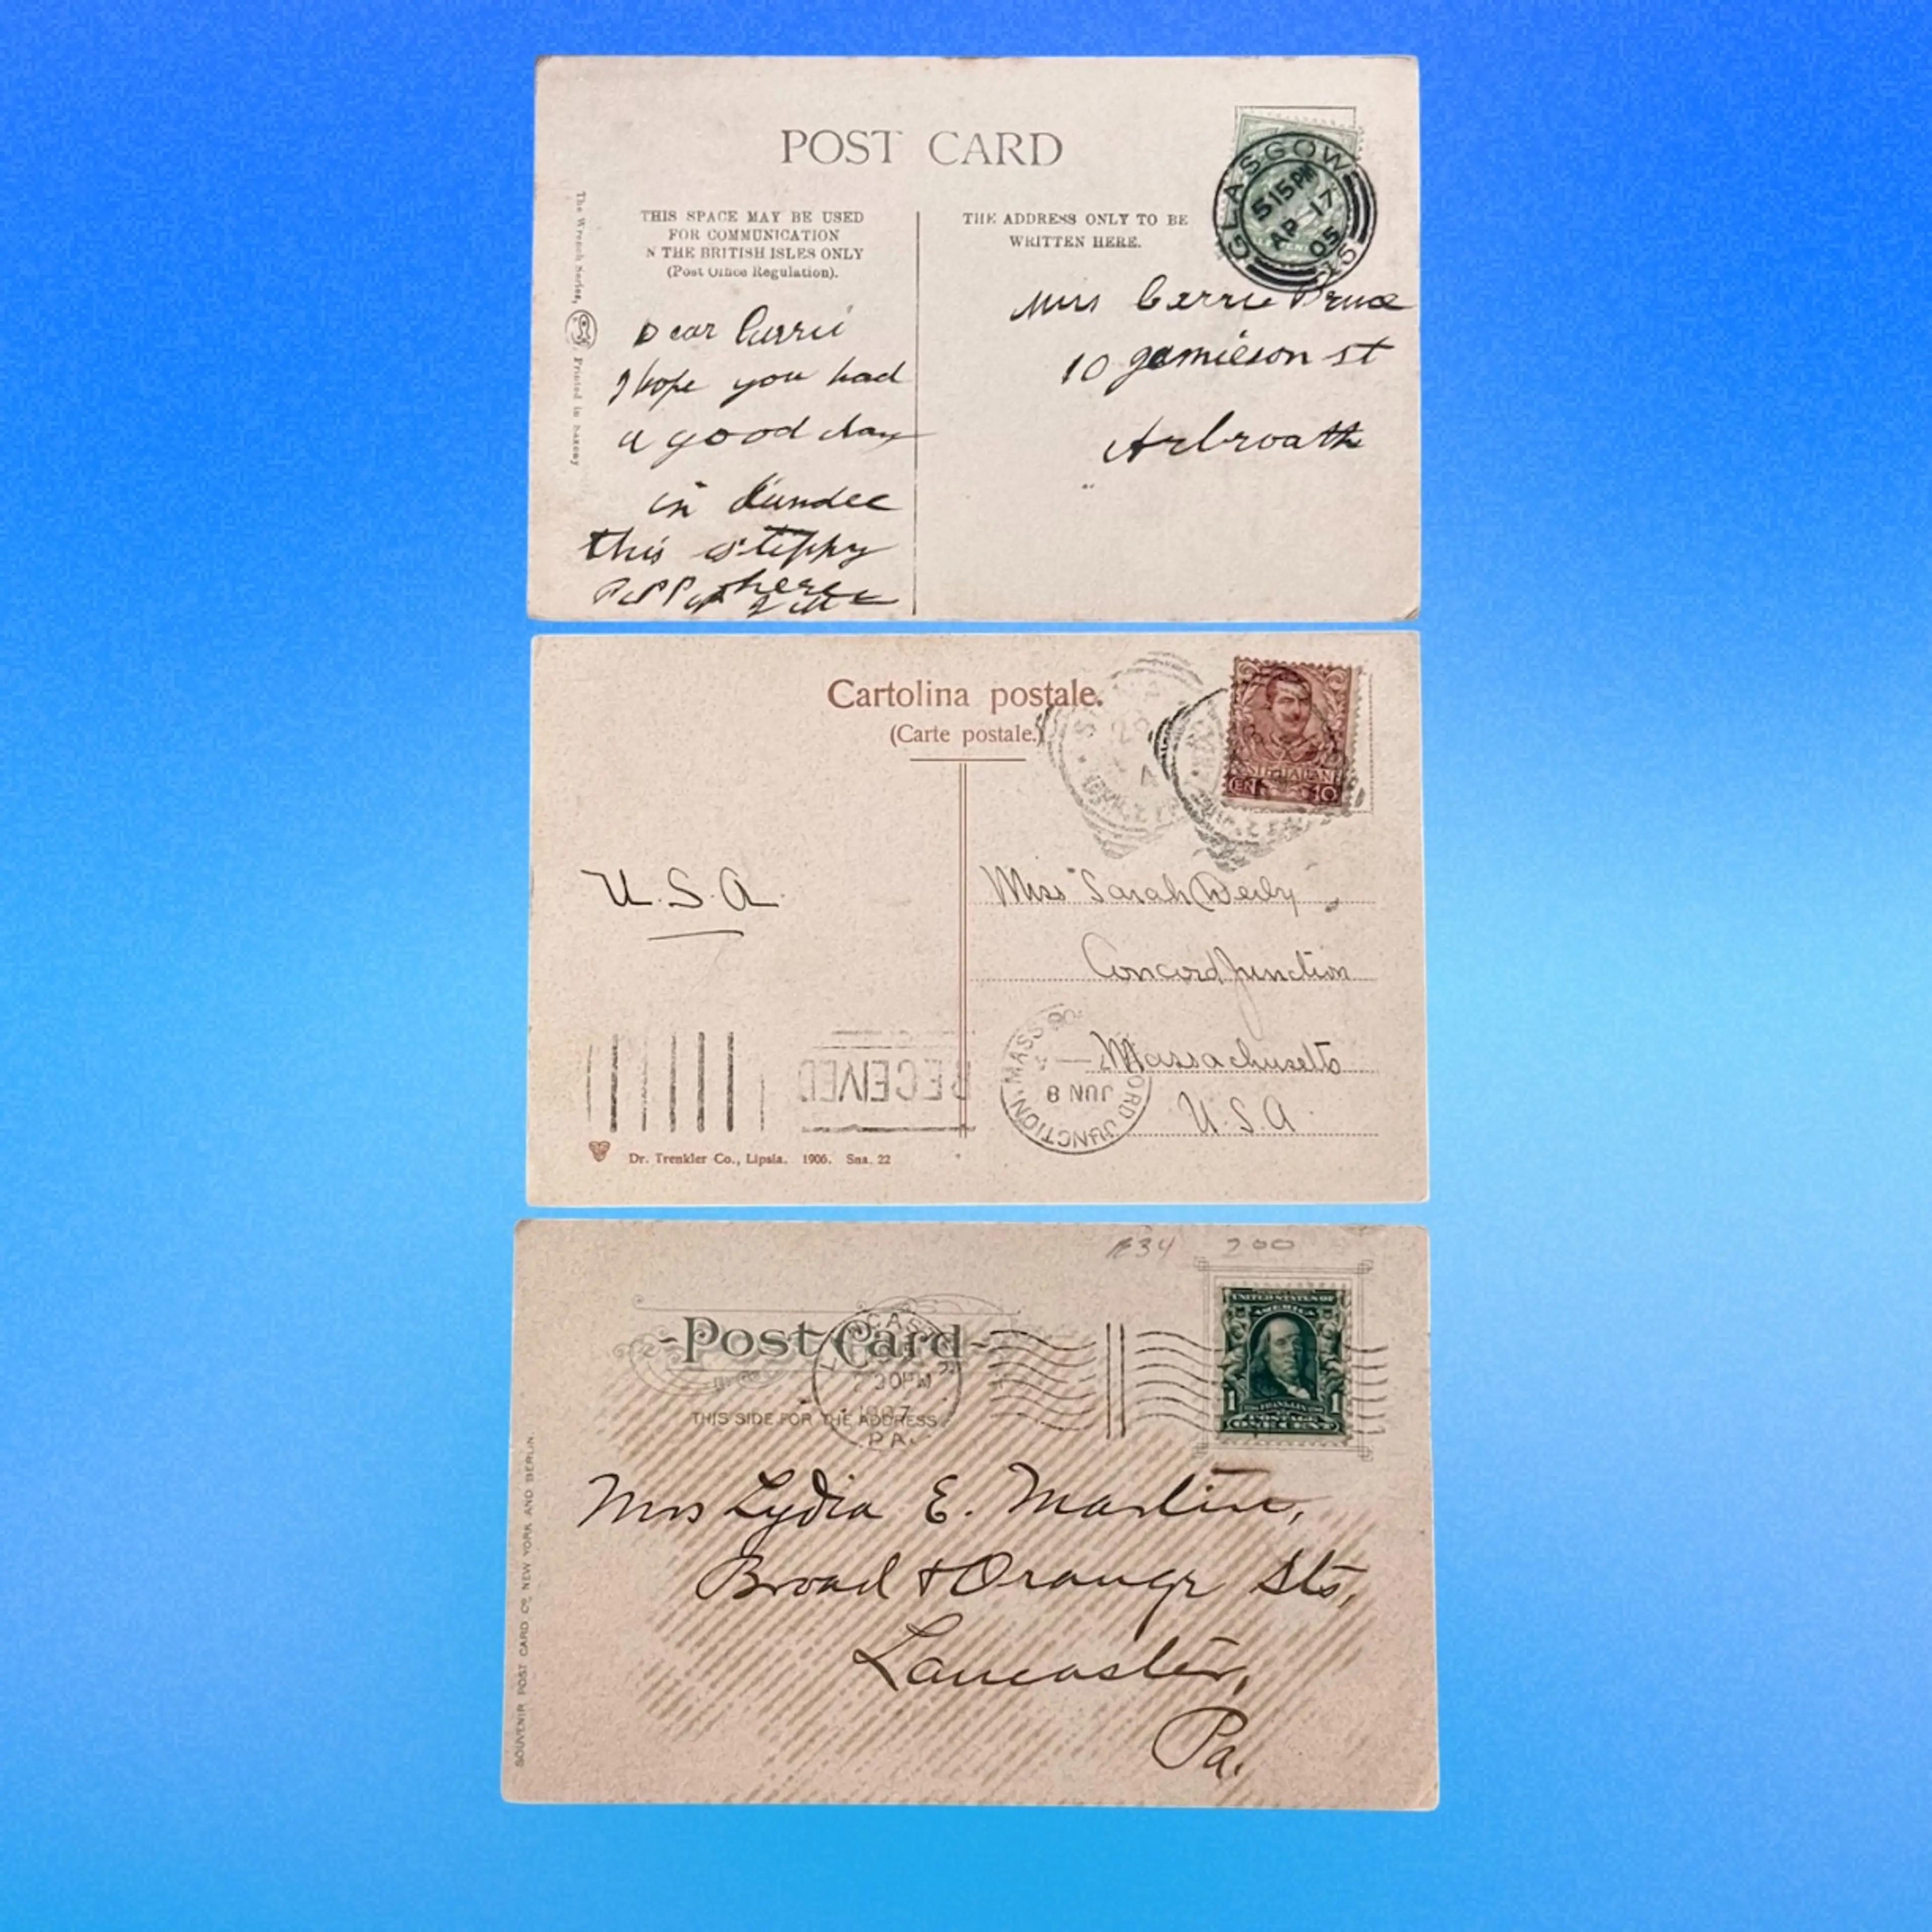 POST CARD
THIS SPACE MAY BE USED
FOR COMMUNICATION
N THE BRITISH ISLES ONLY
(Post Office Regulation).
THE ADDRESS ONLY TO BE
WRITTEN HERE.
GLASGOW
5 15 PM
AP 17
05
15
The Wrench Series,
Printed in Saxony
Dear Carrie
I hope you had
a good day
in dundee
this
here
Miss Carrie Bruce
10 Jamieson st
Arbroath
Cartolina postale.
(Carte postale.)
CEN 10
U.S.A.
Miss Sarah Derby
Concord Junction
Massachusetts
U.S.A.
RECEIVED
ORD JUNCTION. MASS
JUN 8
Dr. Trenkler Co., Lipsia. 1906. Sna. 22
034 200
Post Card
THIS SIDE FOR THE ADDRESS
30PM
1907
PA.
UNITED STATES OF
AMERICA
1 1
FRANKLIN
ONE CENT
Mrs Lydia E. Martin,
Broad & Orange Sts,
Lancaster,
Pa.
SOUVENIR POST CARD CO. NEW YORK AND BERLIN.